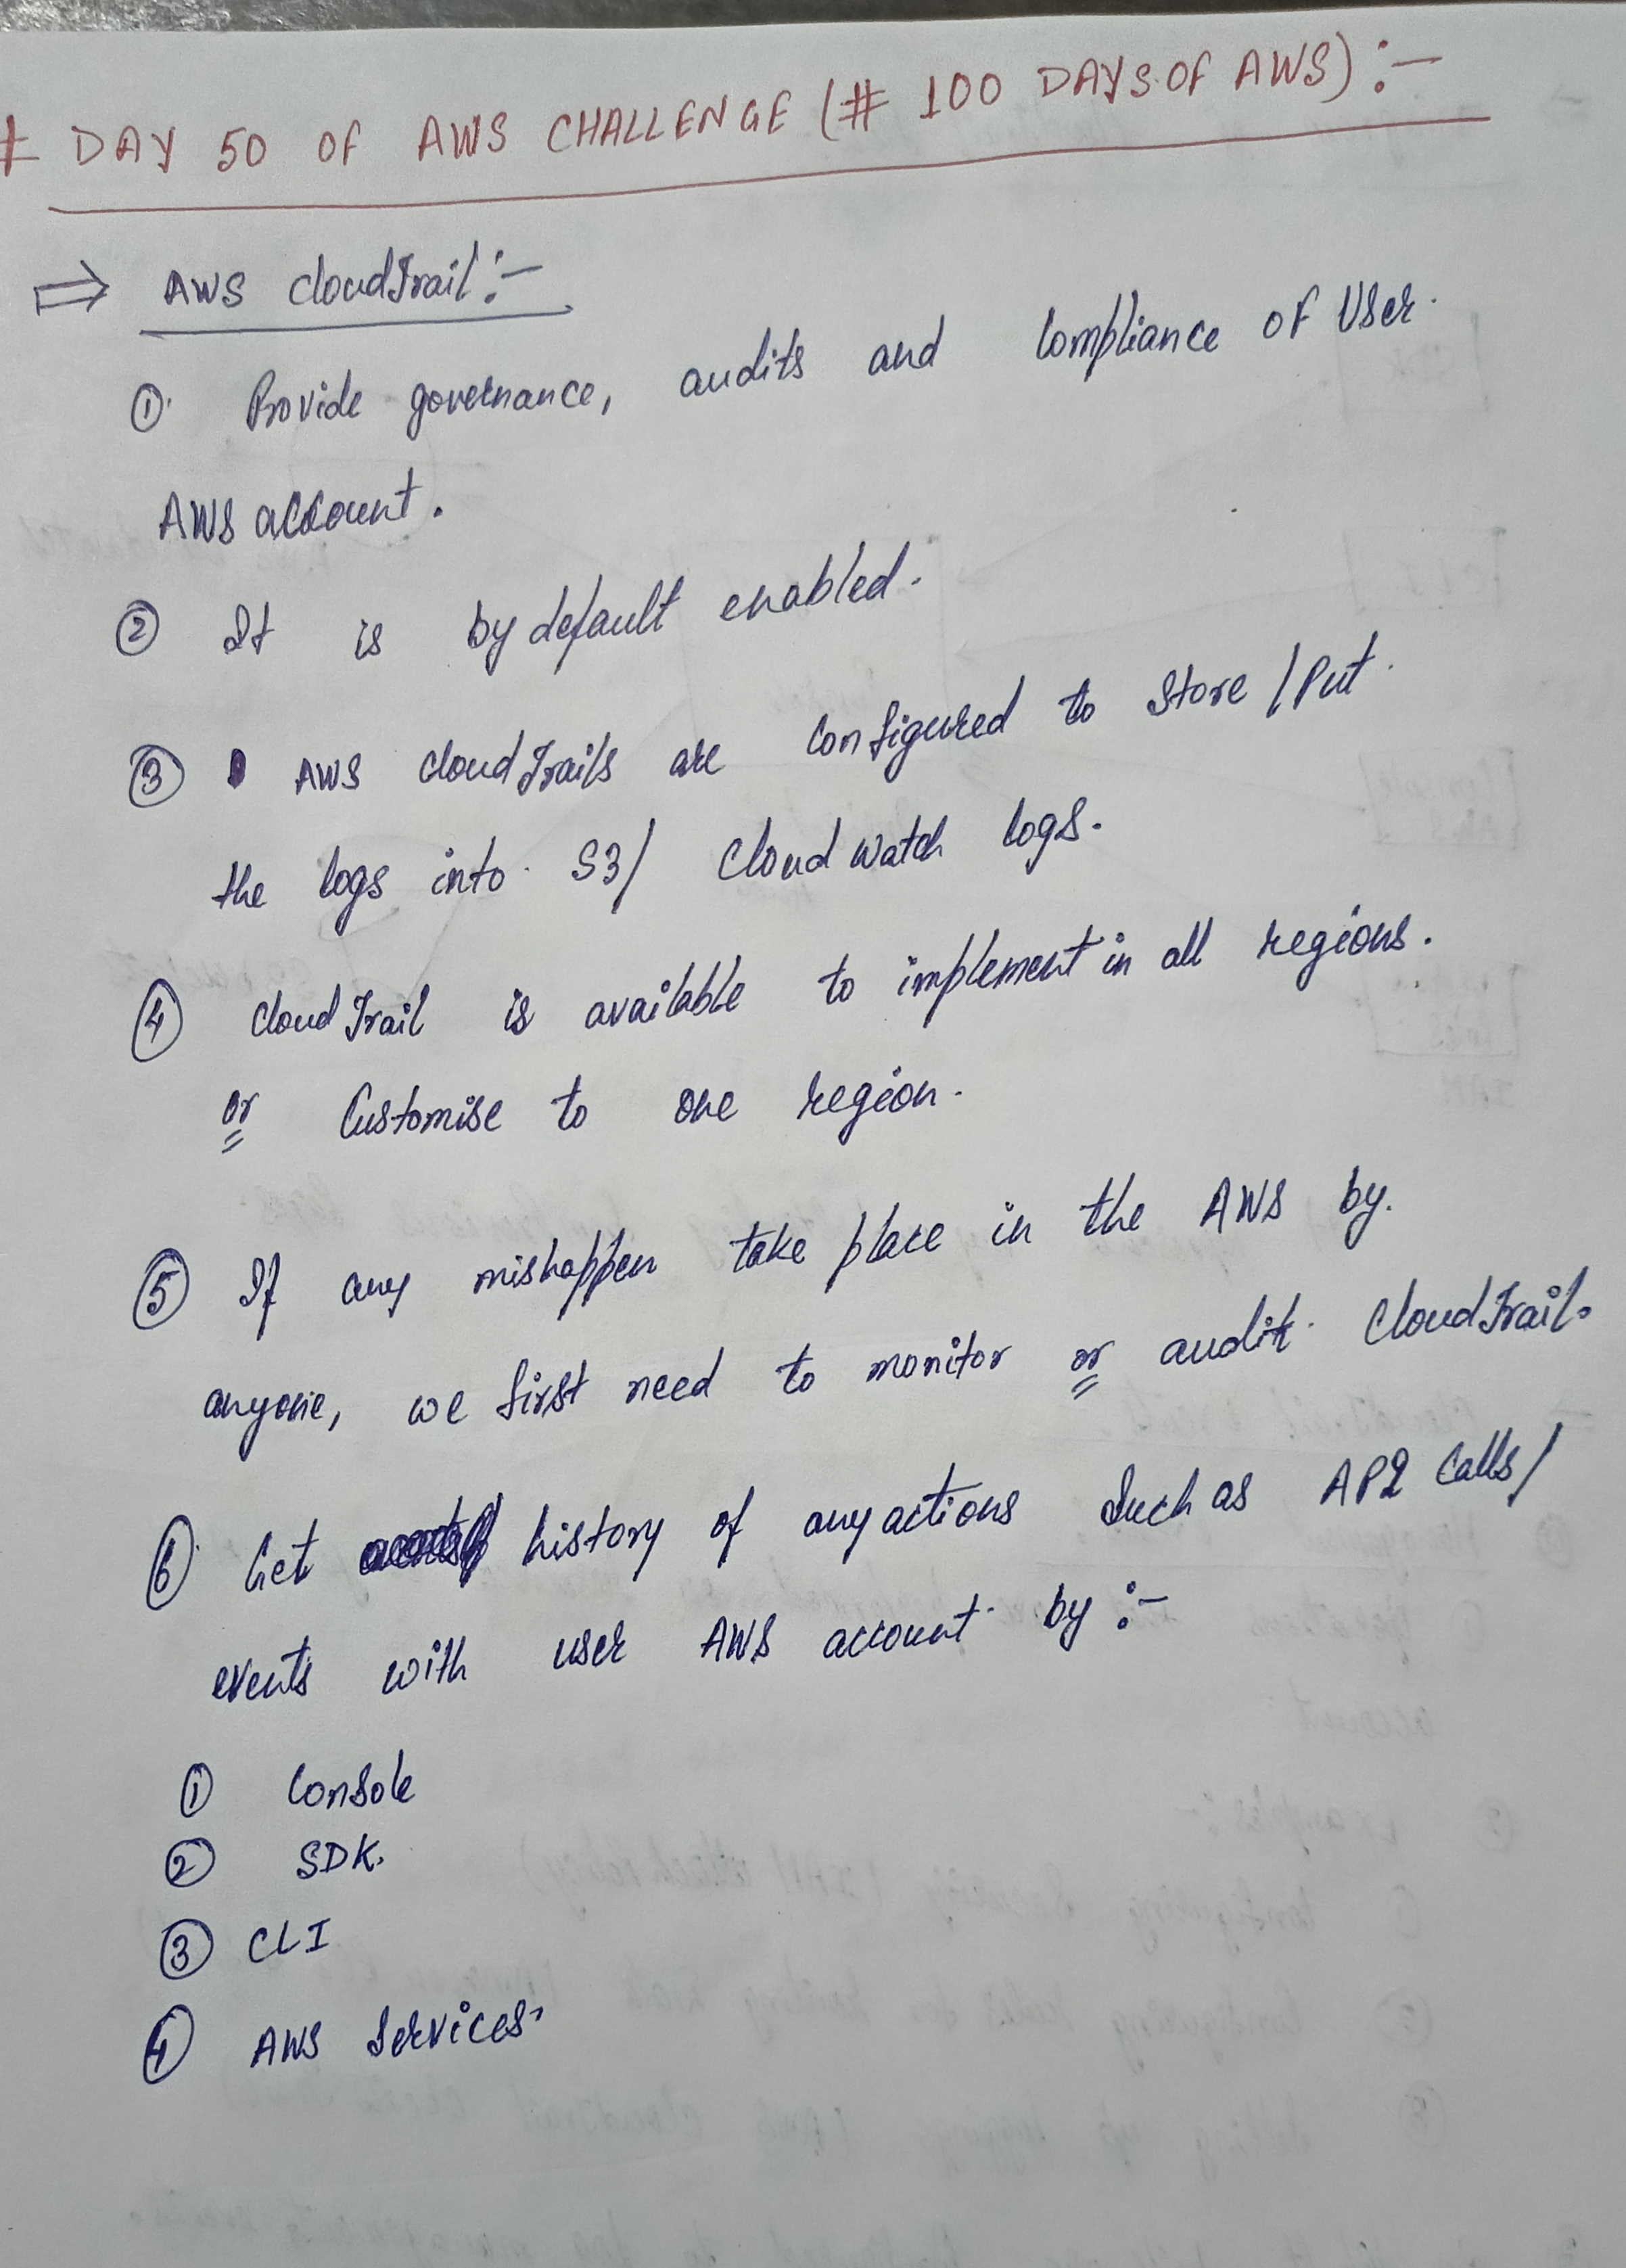 # DAY 50 OF AWS CHALLENGE (# 100 DAYS OF AWS) :-
⇒ AWS CloudTrail :-
① Provide governance, audits and Compliance of User
AWS account.
② It is by default enabled.
③ AWS CloudTrails are Configured to Store / Put
the logs into S3/ Cloud Watch logs.
④ CloudTrail is available to implement in all regions.
or Customise to one region.
⑤ If any mishappen take place in the AWS by
anyone, we first need to monitor or audit CloudTrail.
⑥ Get history of any actions Such as API Calls/
events with user AWS account by :-
① Console
② SDK.
③ CLI
④ AWS Services.